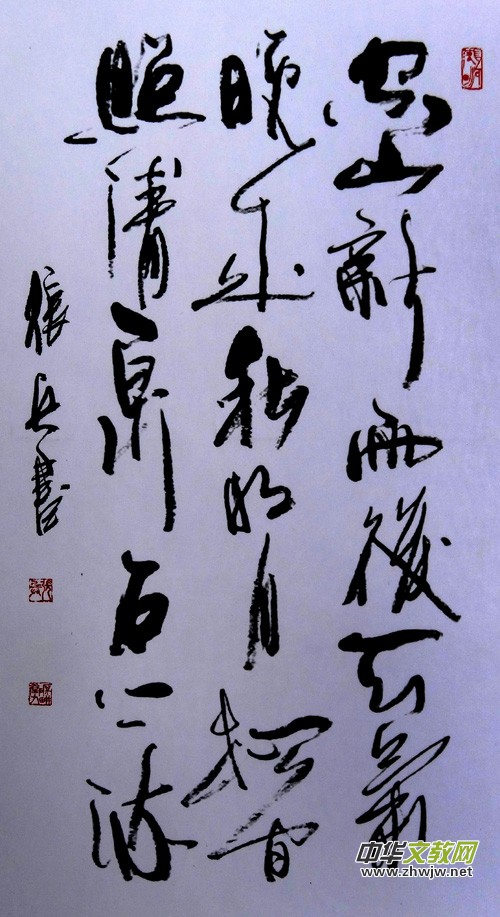 空山新雨後天氣
晚来秋明月松間
照清泉石上流
張兵書
中华文教网
www.zhwjw.net